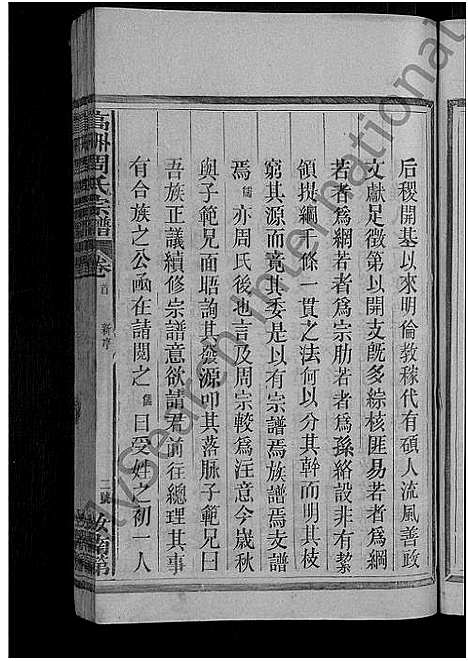 后稷開基以來明倫教稼代有碩人流風善政
文獻足徵第以開支旣多綜核匪易若者爲綱
若者爲網若者爲宗肋若者爲孫絡設非有挈
領提綱千條一貫之法何以分其幹而明其枝
窮其源而竟其委是以有宗譜焉族譜焉支譜
焉儒亦周氏後也言及周宗較爲注意今歲秋
與子範兄面晤詢其發源叩其落脉子範兄曰
吾族正議續修宗譜意欲請君前往總理其事
有合族之公函在請閱之儒曰受姓之初一人
周氏宗譜
卷首
新序
二號
汝南第